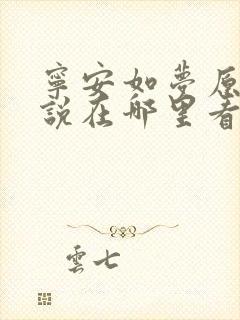 寧安如夢原
說在哪里看
雲七